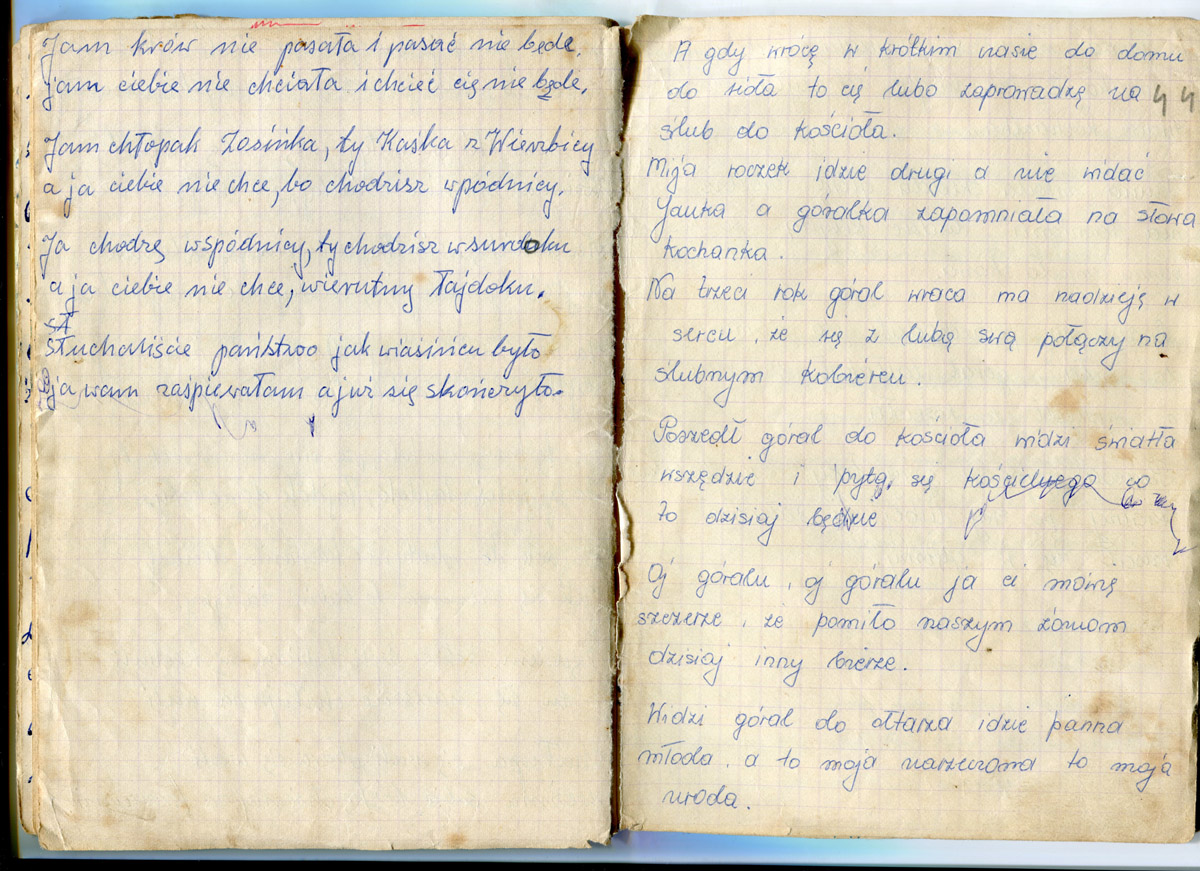 Jam krów nie pasała i pasać nie będe,
jam ciebie nie chciała i chcieć cię nie będe.
Jam chłopak Zosińka, ty Kaśka z Wierzbicy
a ja ciebie nie chce, bo chodzisz wpódnicy.
Ja chodzę wspódnicy, ty chodzisz wsurdoku
a ja ciebie nie chce, wierutny łajdoku.
SŁ
Słuchaliście państwo jak wiasińcu było
ja wam zaśpiewałam a już się skończyło.
A gdy wrócę w krótkim czasie do domu
do sioła to cię lubo zaprowadzę na 44
ślub do kościoła.
Mija roczek idzie drugi a nie widać
Janka a góralka zapomniała na słowa
kochanka.
Na trzeci rok góral wraca ma nadzieję w
sercu, że się z lubą swą połączy na
ślubnym kobiercu.
Poszedł góral do kościoła widzi światła
wszędzie i pyta się kościelnego co
to dzisiaj będzie
Oj góralu, oj góralu ja ci mówię
szczerze, że pomiło naszym
dzisiaj inny bierze.
Widzi góral do ołtarza idzie panna
młoda, a to moja narzeczona to moja
uroda.